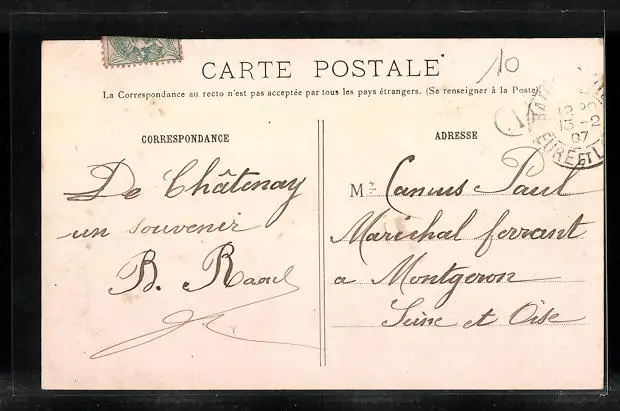 CARTE POSTALE
10
La Correspondance au recto n'est pas acceptée par tous les pays étrangers. (Se renseigner à la Poste).
13-2
07
EURE ET L
CORRESPONDANCE
De Châtenay
un souvenir
B. Raoul
ADRESSE
Mr Canius Paul
Maréchal ferrant
a Montgeron
Seine et Oise